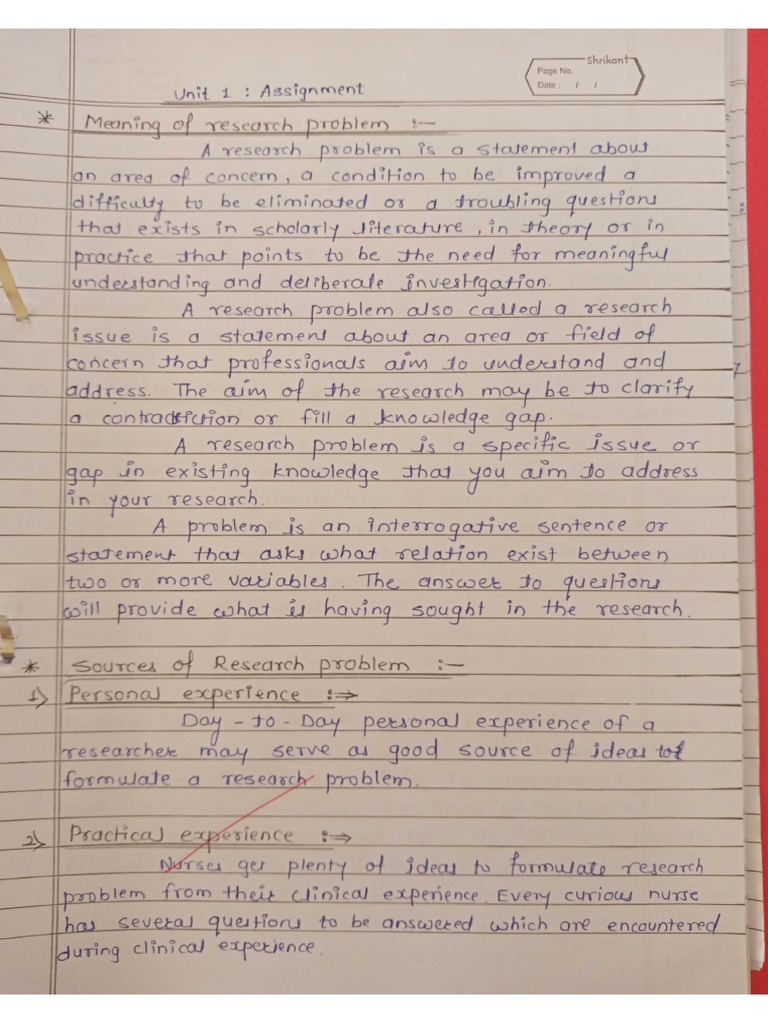 Shrikant
Page No.
Date : / /
Unit 1 : Assignment
* Meaning of research problem :-
A research problem is a statement about
an area of concern, a condition to be improved a
difficulty to be eliminated or a troubling questions
that exists in scholarly literature, in theory or in
practice that points to be the need for meaningful
understanding and deliberate investigation.
A research problem also called a research
issue is a statement about an area or field of
concern that professionals aim to understand and
address. The aim of the research may be to clarify
a contradiction or fill a knowledge gap.
A research problem is a specific issue or
gap in existing knowledge that you aim to address
in your research.
A problem is an interrogative sentence or
statement that asks what relation exist between
two or more variables. The answer to questions
will provide what is having sought in the research.
* Sources of Research problem :-
1) Personal experience :⇒
Day-to-Day personal experience of a
researcher may serve as good source of ideas to
formulate a research problem.
2) Practical experience :⇒
Nurses get plenty of ideas to formulate research
problem from their clinical experience. Every curious nurse
has several questions to be answered which are encountered
during clinical experience.